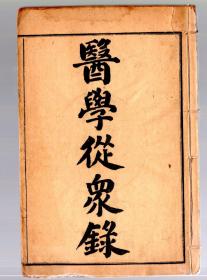 醫學從衆錄